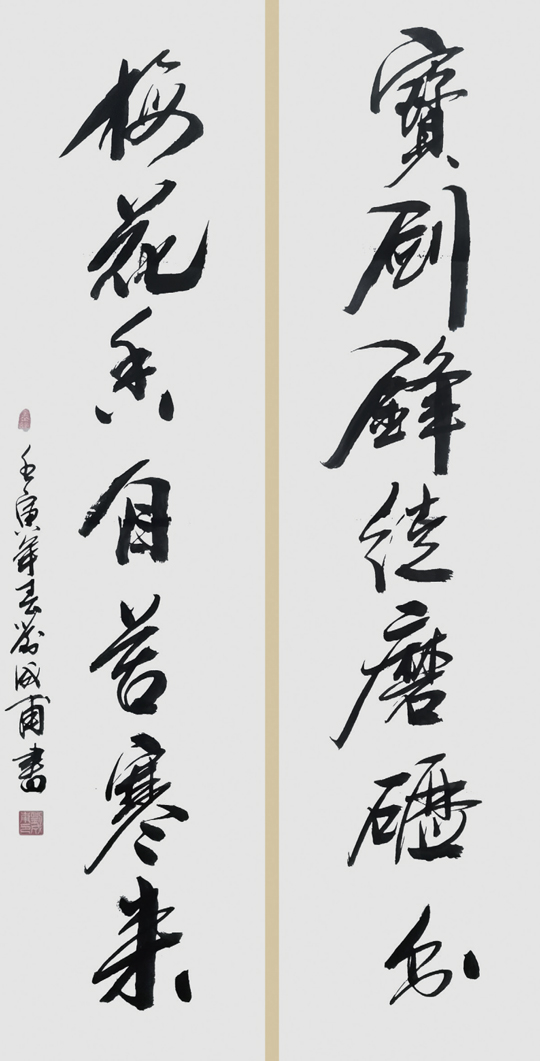 寶劍鋒從磨礪出
梅花香自苦寒來
壬寅年春劉成甫書